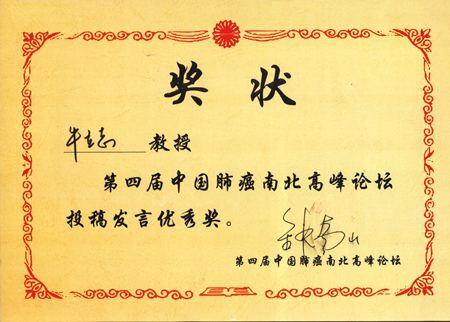 奖状
牛立志 教授
第四届中国肺癌南北高峰论坛
投稿发言优秀奖。
钟南山
第四届中国肺癌南北高峰论坛